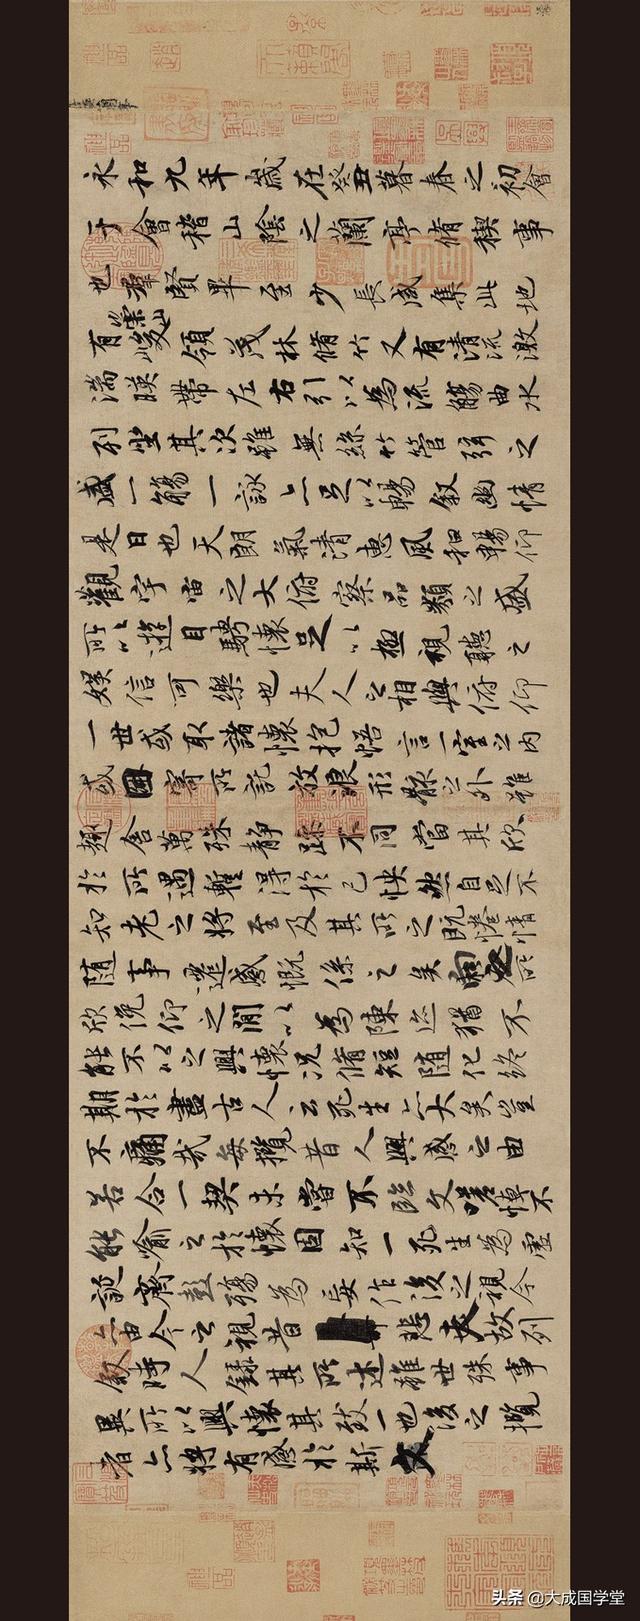 永和九年歲在癸丑暮春之初會
于會稽山陰之蘭亭脩稧事
也羣賢畢至少長咸集此地
有崇山峻領茂林脩竹又有清流激
湍暎帶左右引以為流觴曲水
列坐其次雖無絲竹管弦之
盛一觴一詠亦足以暢敘幽情
是日也天朗氣清惠風和暢仰
觀宇宙之大俯察品類之盛
所以遊目騁懷足以極視聽之
娛信可樂也夫人之相與俯仰
一世或取諸懷抱悟言一室之內
或因寄所託放浪形骸之外雖
趣舍萬殊靜躁不同當其欣
於所遇暫得於己怏然自足不
知老之將至及其所之既惓情
隨事遷感慨係之矣向之所
欣俛仰之閒以為陳迹猶不
能不以之興懷況脩短隨化終
期於盡古人云死生亦大矣豈
不痛哉每攬昔人興感之由
若合一契未嘗不臨文嗟悼不
能喻之於懷固知一死生為虛
誕齊彭殤為妄作後之視今
亦由今之視昔悲夫故列
敘時人錄其所述雖世殊事
異所以興懷其致一也後之攬
者亦將有感於斯文
头条 @大成国学堂